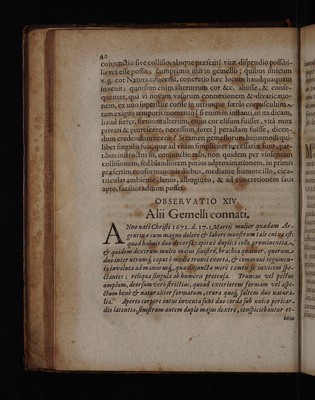 40
conjunctio sive collisio, absque præsenti vitæ dispendio possibi-
lis vix esse possit; cumprimis istis in gemellis; quibus unicum
v. g. cor Natura
invenit; quorsum enim alterutrum cor &c. abiisse, & conse-
quenter, quâ vi novam vasorum connexionem & divaricatio-
nem, ex uno superstite corde in utriusque fœtus corpusculum,
tam exiguo temporis momento [si enim in instanti, ut ita dicam,
haud fieret, fœtuum alterum, cujus cor elisum fuisset, vitâ mox
privari & putrescere, necessum foret] peractam fuisse, dicen-
dum credendumve erit? Si tamen gemellorum hujusmodi qui-
libet singulis suis, quæ ad vitam simpliciter necessariæ sunt, par-
tibus intrà
collisionem, sed blandiorem potius approximationem, in primis
præsertim conformationis diebus, mediante humore illo, cica-
triculas ambiente, lento, albugineo, & ad concretionem satis
apto, facilius admitti posset.
OBSERVATIO XIV.
Alii Gemelli connati.
Anno nati Christi 1672. d. 17. Martij mulier quædam Ar-
gentinæ cum magno dolore & labore monstrum tale enixa est:
quod habuit duo diversa capita duplici collo prominentia,
& quidem dextrum multò majus sinistro, brachia quatuor, quorum
duo inter utrumq; caput è medio trunci exorta, & communi tegumen-
to involuta ad manus usq; quæ disjuncta mirè tamen se invicem spe-
ctantes; reliqua singula ab humeris protensa. Truncus vel pectus
amplum, deorsum verò strictius, quoad exteriorem formam vel aspe-
ctum benè & naturaliter formatum, crura quoq; saltem duo natura-
lia. Aperto corpore intus inventa sunt duo corda sub unico pericar-
dio latentia, sinistrum autem duplo majus dextro, conspiciebatur et-
iam